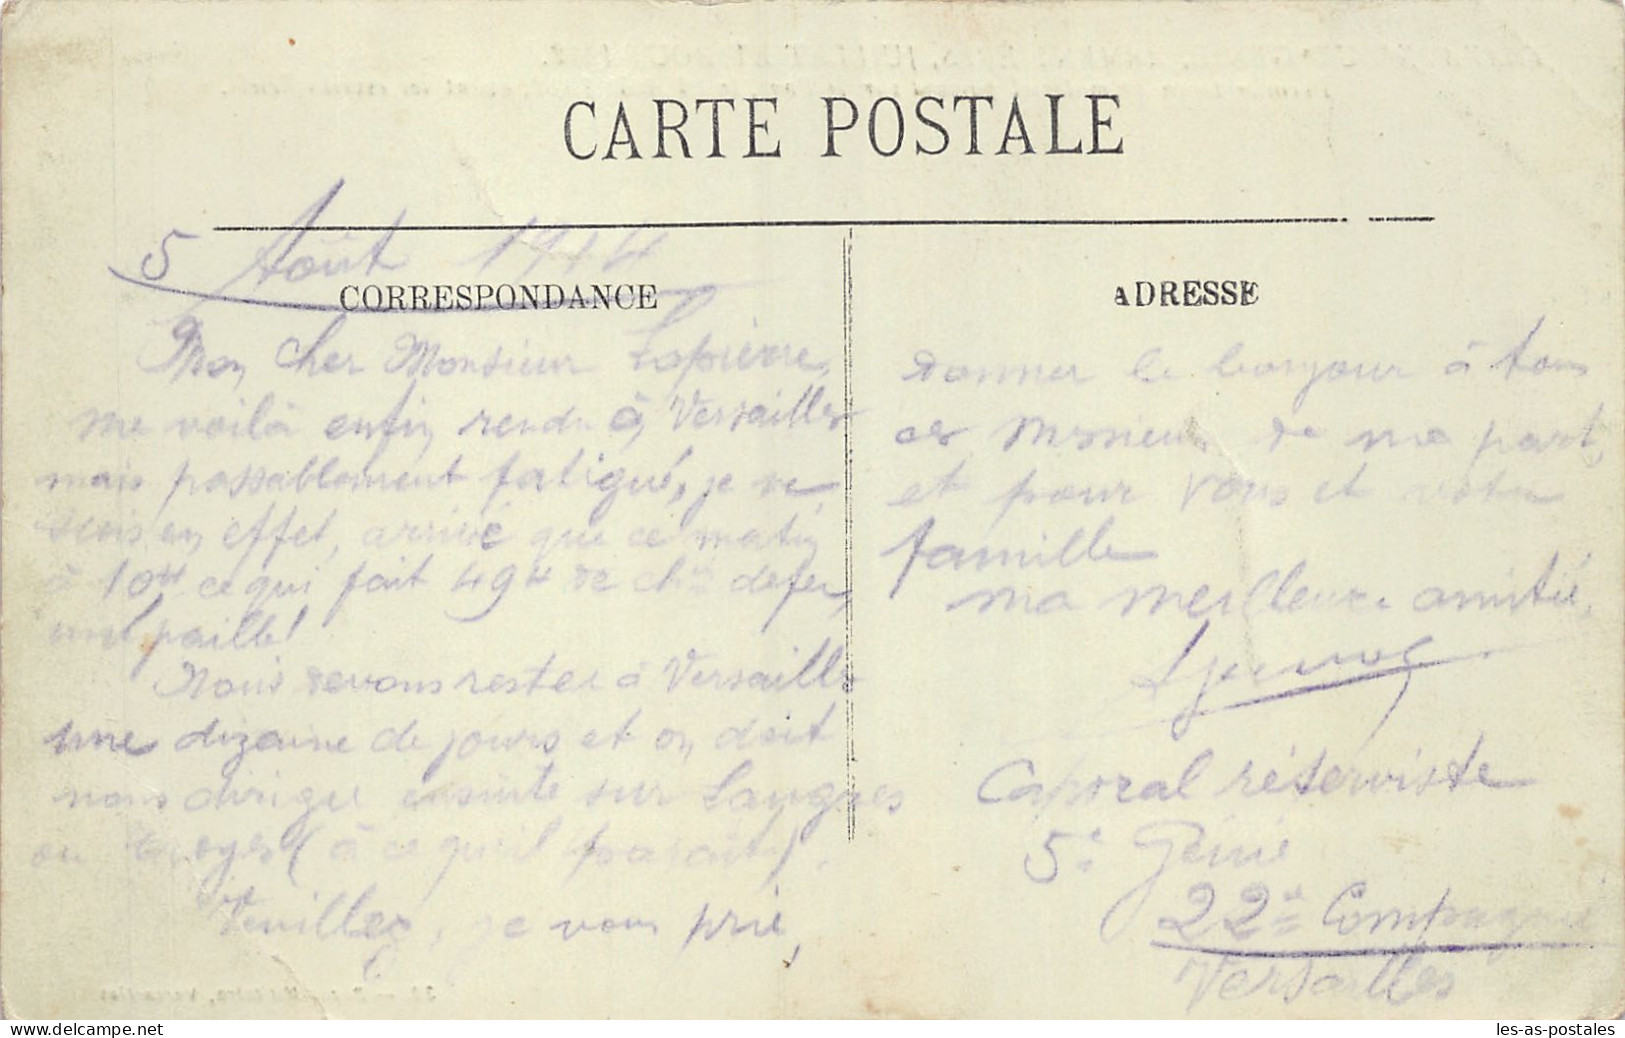 CARTE POSTALE
5 Août 1914
CORRESPONDANCE
Mon cher Monsieur Lapierre,
me voilà enfin rendu à Versailles
mais passablement fatigué, je ne
suis en effet, arrivé que ce matin
à 10H ce qui fait 49H de chin de fer,
une paille!
Nous devons rester à Versailles
une dizaine de jours et on doit
nous diriger ensuite sur Langres
ou Troyes (à ce qu'il parait).
Veuillez, je vous prie,
ADRESSE
donner le bonjour à tous
ces Messieurs de ma part,
et pour vous et votre
famille
ma meilleure amitié.
Caporal réserviste
5e Génie
22e Compagnie
Versailles
les-as-postales.com
les-as-postales